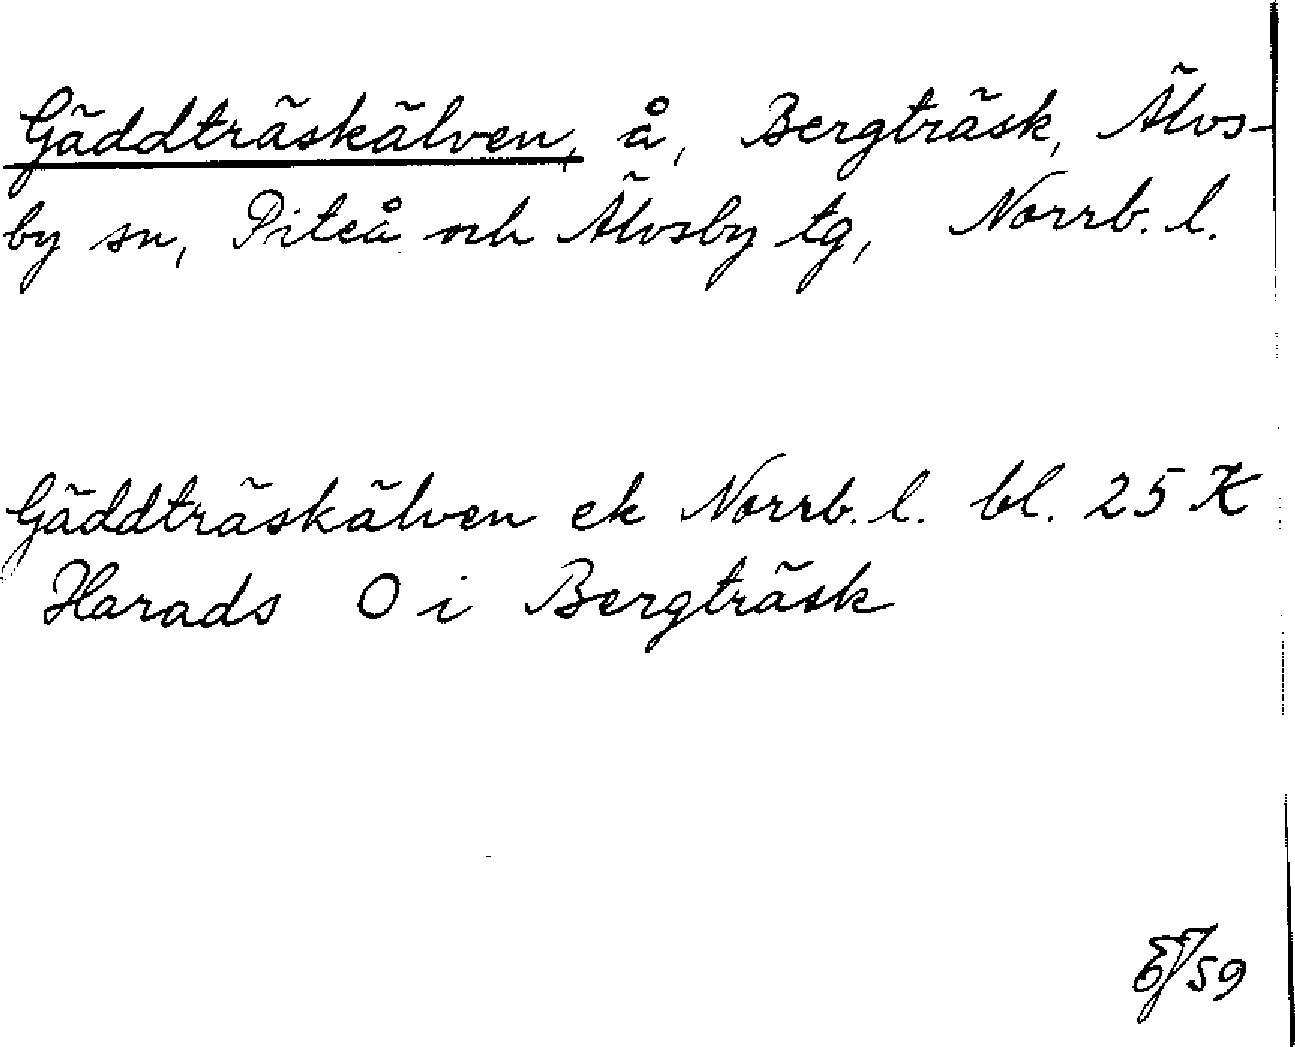 Gäddträskälven, å, Bergträsk, Älvs-
by sn, Piteå och Älvsby tg, Norrb. l.
Gäddträskälven ek Norrb. l. bl. 25 K
Harads O i Bergträsk
59